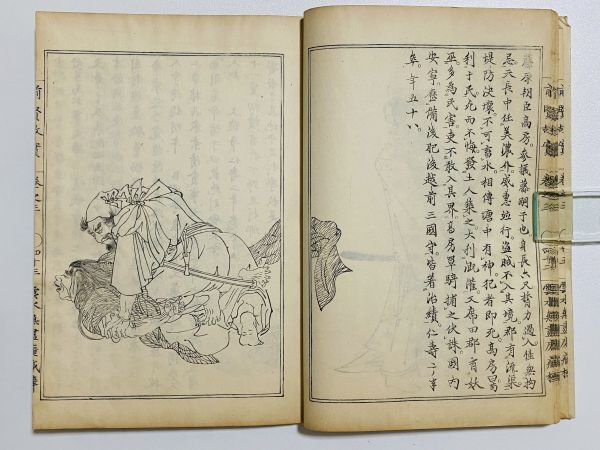 藤原朝臣高房。参議藤嗣子也身長六尺膂力過人任無拘
忌天長中任美濃介。威惠並行。盗賊不入其境郡有渠
堤防决壊。不可蓄水。相傳塘中有神。犯者即死。高房曰
利于民死而不悔。發土人築之大利漑灌。又席田郡有妖
巫多為民害吏不敢入其界。高房單騎捕之伏誅。國内
安寧。歷備後肥後越前三國守。皆著治績。仁壽二年
卒。年五十八。
前賢故實
卷之三
四十三
雲水無盡庵藏